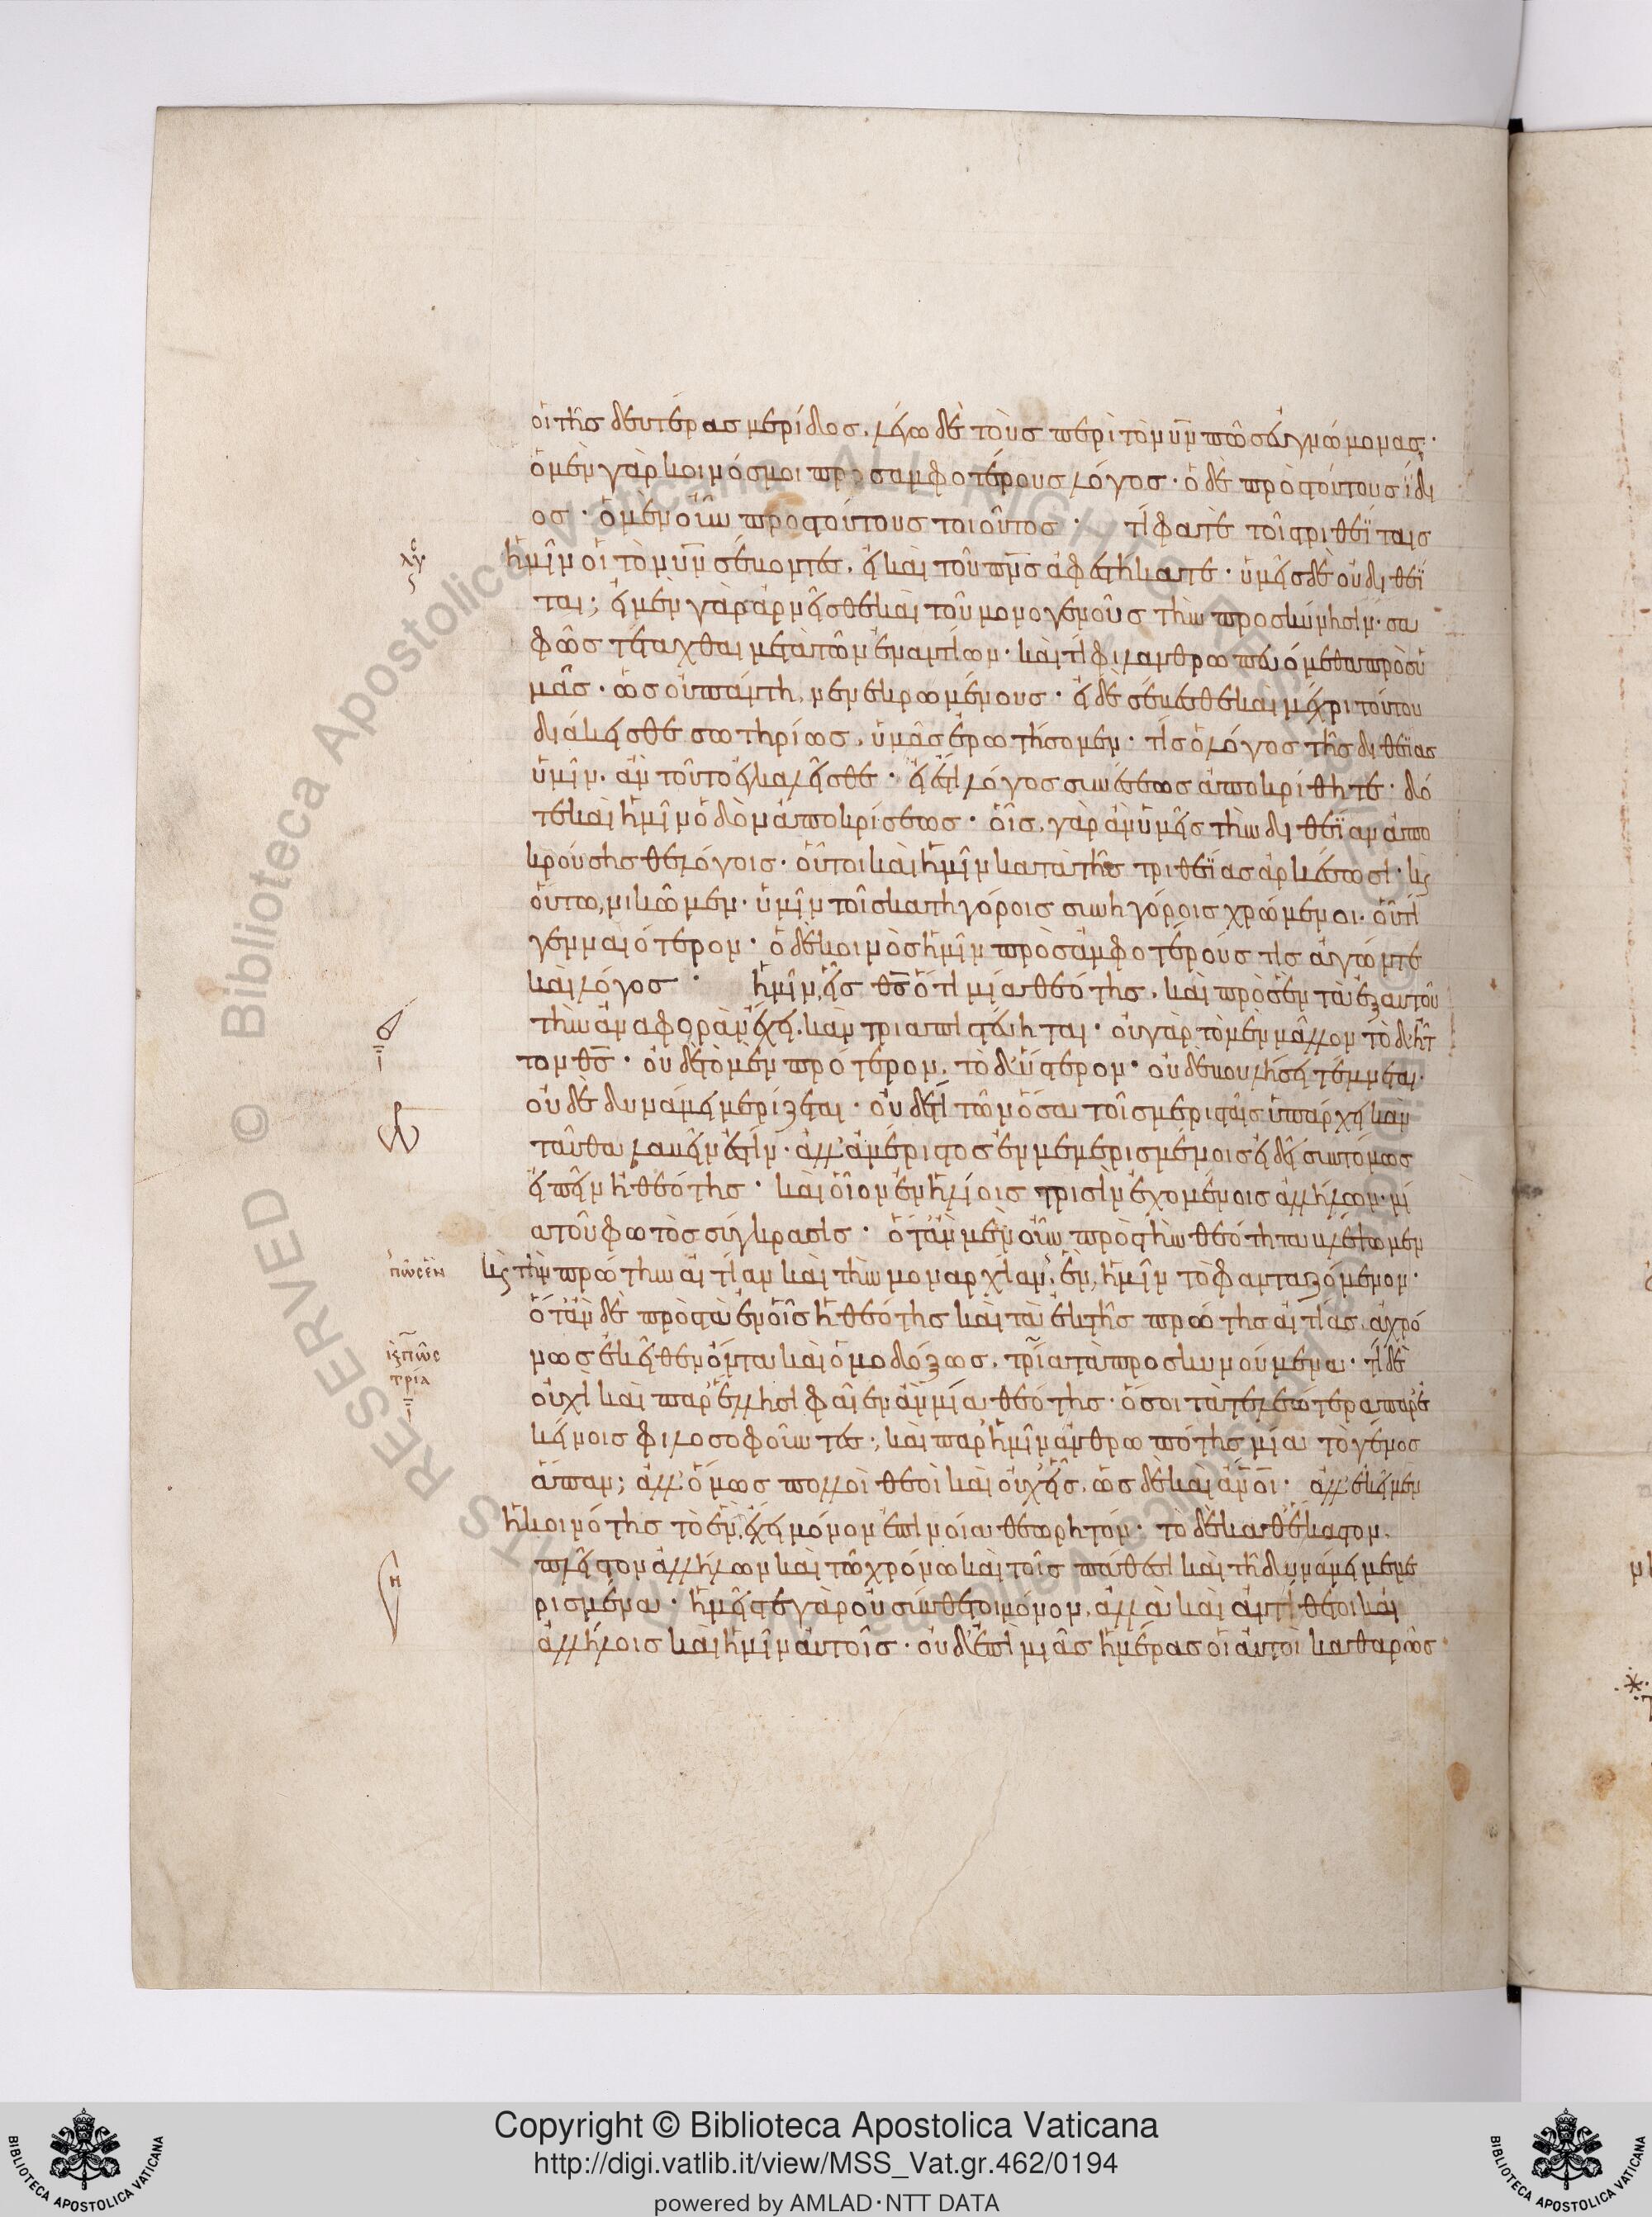 οἱ τῆς δευτέρας μερίδος. λέγω δὲ τοὺς περὶ τὸν υν̅ πῶς ὑγιαίνοντας·
ὁ μὲν γὰρ κοινός μοι πρὸς ἀμφοτέρους λόγος· ὁ δὲ πρὸς τούτους ἴδι
ος· ὁ μὲν οὖν πρὸς τούτους τοιοῦτος· τί φατὲ τοῖς τριθεΐταις
ἡμῖν οἱ τὸν υν̅ σέβοντες, εἰ καὶ τοῦ πν̅ς ἀφεστήκατε· ὑμεῖς δὲ οὐ διθεῖ
ται; εἰ μὲν γὰρ ἀρνεῖσθε καὶ τοῦ μονογενοῦς τὴν προσκύνησιν· σα
φῶς τέταχθαι μετὰ τῶν ἐναντίων· καὶ τί φιλανθρωπευόμεθα πρὸς ὑ
μᾶς· ὡς οὐ πάντη νενεκρωμένους· εἰ δὲ σέβεσθε καὶ μέχρι τούτου
διάκεισθε σωτηρίως, ὑμᾶς ἐρωτήσομεν· τίς ὁ λόγος τῆς διθεΐας
ὑμῖν. ἂν τοῦτο ἐγκαλεῖσθε· εἰ ἔστι λόγος συνέσεως ἀποκρίθητε· δό
τε καὶ ἡμῖν ὁδὸν ἀποκρίσεως· οἷς γὰρ ἂν ὑμεῖς τὴν διθεΐαν ἀπο
κρούσησθε λόγοις· οὗτοι καὶ ἡμῖν κατὰ τῆς τριθεΐας ἀρκέσωσι· κ̀
οὕτω νικῶμεν· ὑμῖν τοῖς κατηγόροις συνηγόροις χρώμενοι. οὗ τί
γενναιότερον· ὁ δὲ κοινὸς ἡμῖν πρὸς ἀμφοτέρους τίς ἀγών τε
καὶ λόγος· ἡμῖν εἷς θς̅ ὅτι μία θεότης, καὶ πρὸς ἓν τὰ ἐξ αὐτοῦ
τὴν ἀναφορὰν ἔχει, κἂν τρία πιστεύηται· οὐ γὰρ τὸ μὲν μᾶλλον τὸ δὲ ἧτ
τον θς̅· οὐδὲ τὸ μὲν πρότερον, τὸ δ' ὕστερον· οὐδὲ βουλήσει τέμνεται·
οὐδὲ δυνάμει μερίζεται· οὐδέ τι τῶν ὅσα τοῖς μεριστοῖς ὑπάρχει κἀν
ταῦθα λαβεῖν ἐστίν· ἀλλ' ἀμέριστος ἐν μεμερισμένοις εἰ δεῖ συντόμως
εἰπεῖν ἡ θεότης· καὶ οἷον ἐν ἡλίοις τρισὶν ἐχομένοις ἀλλήλων· μί
α τοῦ φωτὸς σύγκρασις· ὅταν μὲν οὖν πρὸς τὴν θεότητα βλέψωμεν
κ̀ τὴν πρώτην αἰτίαν καὶ τὴν μοναρχίαν, ἓν ἡμῖν τὸ φανταζόμενον·
ὅταν δὲ πρὸς τὰ ἐν οἷς ἡ θεότης καὶ τὰ ἐκ τῆς πρώτης αἰτίας ἀχρό
νως ἐκεῖθεν ὄντα καὶ ὁμοδόξως, τρία τὰ προσκυνούμενα· τί δὲ
οὐχὶ καὶ παρ' ἕλλησι φαῖεν ἂν μία θεότης· ὅσοι τὰ τελεώτερα παρ' ἐ
κείνοις φιλοσοφοῦντες; καὶ παρ' ἡμῖν ἀνθρωπότης μία τὸ γένος
ἅπαν; ἀλλ' ὅμως πολλοὶ θεοὶ καὶ οὐχ' εἷς. ὡς δὲ καὶ αν̅οι· ἀλλ' ἐκεῖ μὲν
ἡ κοινότης τὸ ἓν ἔχει μόνον ἐπινοία θεωρητόν· τὸ δὲ καθέκαστον,
πλεῖστον ἀλλήλων καὶ τῶ χρόνω καὶ τοῖς πάθεσι καὶ τῆ δυνάμει μεμε
ρισμένα· ἡμεῖς τε γὰρ οὐ σύνθετοι μόνον, ἀλλὰ καὶ ἀντίθετοι καὶ
ἀλλήλοις καὶ ἡμῖν αὐτοῖς· οὐδ' ἐπὶ μιᾶς ἡμέρας οἱ αὐτοὶ καθαρῶς
πῶς ἕν
κ̀ πῶς
τρία
© Biblioteca Apostolica Vaticana ALL RIGHTS RESERVED
Copyright © Biblioteca Apostolica Vaticana
http://digi.vatlib.it/view/MSS_Vat.gr.462/0194
powered by AMLAD·NTT DATA
BIBLIOTECA APOSTOLICA VATICANA
BIBLIOTECA APOSTOLICA VATICANA